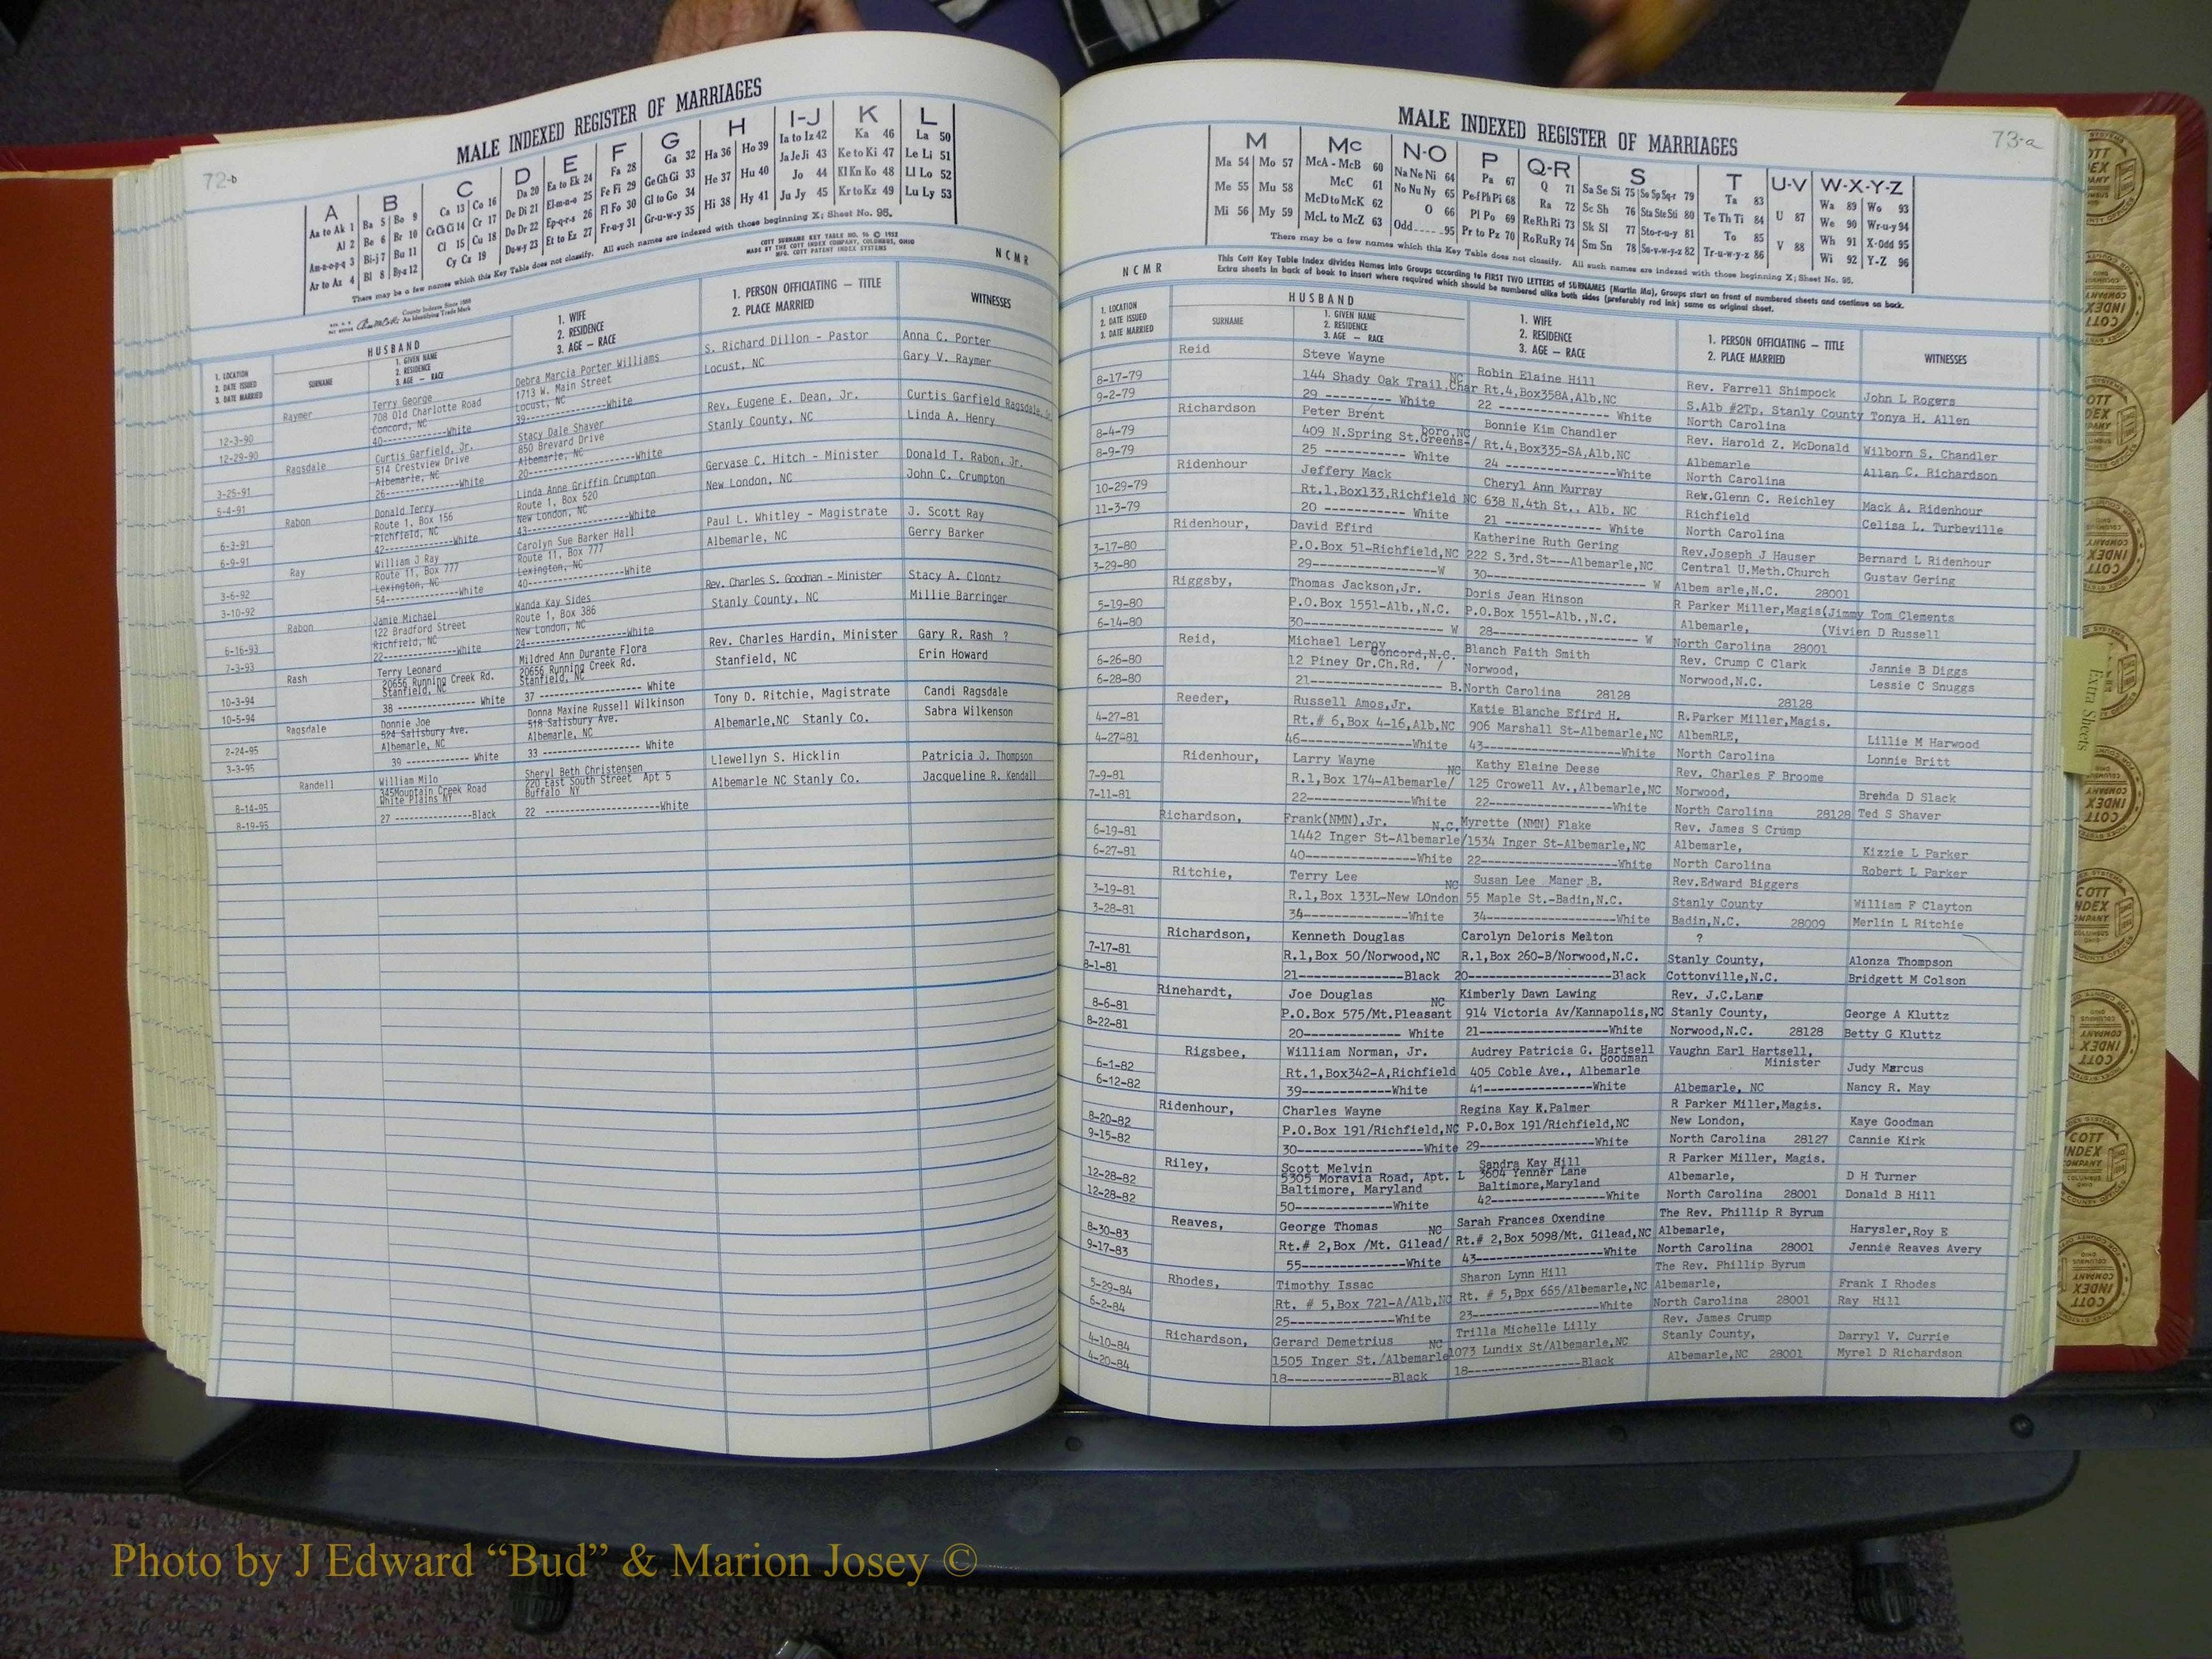 72-b
MALE INDEXED REGISTER OF MARRIAGES
A B C D E F G H I-J K L
Aa to Ak 1 Ba 5 Bo 9 Ca 13 Co 16 Da 20 Ea to Ek 24 Fa 28 Ga 32 Ha 36 Ho 39 Ia to Iz 42 Ka 46 La 50
Al 2 Be 6 Br 10 Ce Ch Ci 14 Cr 17 De Di 21 El-m-n-o 25 Fe Fi 29 Ge Gh Gi 33 He 37 Hu 40 Ja Je Ji 43 Ke to Ki 47 Le Li 51
Am-n-o-p-q 3 Bi-j 7 Bu 11 Cl 15 Cu 18 Do Dr 22 Ep-q-r-s 26 Fl Fo 30 Gl to Go 34 Hi 38 Hy 41 Jo 44 Kl Kn Ko 48 Ll Lo 52
Ar to Az 4 Bl 8 By-z 12 Cy Cz 19 Du-w-y 23 Et to Ez 27 Fr-u-y 31 Gr-u-w-y 35 Ju Jy 45 Kr to Kz 49 Lu Ly 53
There may be a few names which this Key Table does not classify. All such names are indexed with those beginning X; Sheet No. 95.
COTT SURNAME KEY TABLE NO. 96 © 1952
MADE BY THE COTT INDEX COMPANY, COLUMBUS, OHIO
MFG. COTT PATENT INDEX SYSTEMS
County Indexes Since 1888
An Identifying Trade Mark
NCMR
1. LOCATION
2. DATE ISSUED
3. DATE MARRIED
HUSBAND
SURNAME
1. GIVEN NAME
2. RESIDENCE
3. AGE — RACE
1. WIFE
2. RESIDENCE
3. AGE — RACE
1. PERSON OFFICIATING — TITLE
2. PLACE MARRIED
WITNESSES
12-3-90
12-29-90
Raymer
Terry George
708 Old Charlotte Road
Concord, NC
40---------------White
Debra Marcia Porter Williams
1713 W. Main Street
Locust, NC
39---------------White
S. Richard Dillon - Pastor
Locust, NC
Anna C. Porter
Gary V. Raymer
3-25-91
5-4-91
Ragsdale
Curtis Garfield, Jr.
514 Crestview Drive
Albemarle, NC
26---------------White
Stacy Dale Shaver
850 Brevard Drive
Albemarle, NC
20---------------White
Rev. Eugene E. Dean, Jr.
Stanly County, NC
Curtis Garfield Ragsdale,
Linda A. Henry
6-3-91
6-9-91
Rabon
Donald Terry
Route 1, Box 156
Richfield, NC
42---------------White
Linda Anne Griffin Crumpton
Route 1, Box 520
New London, NC
43---------------White
Gervase C. Hitch - Minister
New London, NC
Donald T. Rabon, Jr.
John C. Crumpton
3-6-92
3-10-92
Ray
William J Ray
Route 11, Box 777
Lexington, NC
54---------------White
Carolyn Sue Barker Hall
Route 11, Box 777
Lexington, NC
40---------------White
Paul L. Whitley - Magistrate
Albemarle, NC
J. Scott Ray
Gerry Barker
6-16-93
7-3-93
Rabon
Jamie Michael
122 Bradford Street
Richfield, NC
22---------------White
Wanda Kay Sides
Route 1, Box 386
New London, NC
24---------------White
Rev. Charles S. Goodman - Minister
Stanly County, NC
Stacy A. Clontz
Millie Barringer
10-3-94
10-5-94
Rash
Terry Leonard
20656 Running Creek Rd.
Stanfield, NC
38 --------------- White
Mildred Ann Durante Flora
20656 Running Creek Rd.
Stanfield, NC
37 --------------- White
Rev. Charles Hardin, Minister
Stanfield, NC
Gary R. Rash ?
Erin Howard
2-24-95
3-3-95
Ragsdale
Donnie Joe
524 Salisbury Ave.
Albemarle, NC
39 --------------- White
Donna Maxine Russell Wilkinson
518 Salisbury Ave.
Albemarle, NC
33 --------------- White
Tony D. Ritchie, Magistrate
Albemarle,NC Stanly Co.
Candi Ragsdale
Sabra Wilkenson
8-14-95
8-19-95
Randell
William Milo
345Mountain Creek Road
White Plains NY
27 ---------------Black
Sheryl Beth Christensen
220 East South Street Apt 5
Buffalo NY
22 ---------------White
Llewellyn S. Hicklin
Albemarle NC Stanly Co.
Patricia J. Thompson
Jacqueline R. Kendall
73-a
MALE INDEXED REGISTER OF MARRIAGES
M Mc N-O P Q-R S T U-V W-X-Y-Z
Ma 54 Mo 57 McA - McB 60 Na Ne Ni 64 Pa 67 Q 71 Sa Se Si 75 So Sp Sq-r 79 Ta 83 Wa 89 Wo 93
Me 55 Mu 58 McC 61 No Nu Ny 65 Pe-f Ph Pi 68 Ra 72 Sc Sh 76 Sta Ste Sti 80 Te Th Ti 84 U 87 We 90 Wr-u-y 94
Mi 56 My 59 McD to McK 62 O 66 Pl Po 69 Re Rh Ri 73 Sk Sl 77 Sto-r-u-y 81 To 85 V 88 Wh 91 X-Odd 95
McL to McZ 63 Odd 95 Pr to Pz 70 Ro Ru Ry 74 Sm Sn 78 Su-v-w-y-z 82 Tr-u-w-y-z 86 Wi 92 Y-Z 96
There may be a few names which this Key Table does not classify. All such names are indexed with those beginning X; Sheet No. 95.
This Cott Key Table Index divides Names into Groups according to FIRST TWO LETTERS of SURNAMES (Martin Ma), Groups start on front of numbered sheets and continue on back.
Extra sheets in back of book to insert where required which should be numbered alike both sides (preferably red ink) same as original sheet.
NCMR
1. LOCATION
2. DATE ISSUED
3. DATE MARRIED
HUSBAND
SURNAME
1. GIVEN NAME
2. RESIDENCE
3. AGE — RACE
1. WIFE
2. RESIDENCE
3. AGE — RACE
1. PERSON OFFICIATING — TITLE
2. PLACE MARRIED
WITNESSES
8-17-79
9-2-79
Reid
Steve Wayne
144 Shady Oak Trail.Char NC
29 ---------- White
Robin Elaine Hill
Rt.4,Box358A,Alb,NC
22 --------------- White
Rev. Farrell Shimpock
S.Alb #2Tp, Stanly County
North Carolina
John L Rogers
Tonya H. Allen
8-4-79
8-9-79
Richardson
Peter Brent
409 N.Spring St.Greens-/ boro,NC
25 ----------- White
Bonnie Kim Chandler
Rt.4,Box335-SA,Alb,NC
24 ---------------White
Rev. Harold Z. McDonald
Albemarle
North Carolina
Wilborn S. Chandler
Allan C. Richardson
10-29-79
11-3-79
Ridenhour
Jeffery Mack
Rt.1,Box133,Richfield NC
20 ----------- White
Cheryl Ann Murray
638 N.4th St., Alb. NC
21 ------------- White
Rev.Glenn C. Reichley
Richfield
North Carolina
Mack A. Ridenhour
Celisa L. Turbeville
3-17-80
3-29-80
Ridenhour,
David Efird
P.O.Box 51-Richfield,NC
29---------------W
Katherine Ruth Gering
222 S.3rd.St---Albemarle,NC
30-------------------- W
Rev.Joseph J Hauser
Central U.Meth.Church
Albem arle,N.C. 28001
Bernard L Ridenhour
Gustav Gering
5-19-80
6-14-80
Riggsby,
Thomas Jackson,Jr.
P.O.Box 1551-Alb.,N.C.
30---------------- W
Doris Jean Hinson
P.O.Box 1551-Alb.,N.C.
28------------------ W
R Parker Miller,Magis(Jimmy Tom Clements
Albemarle, (Vivien D Russell
North Carolina 28001
6-26-80
6-28-80
Reid,
Michael Leroy
12 Piney Gr.Ch.Rd. / Concord,N.C.
21------------------ B.
Blanch Faith Smith
Norwood,
North Carolina 28128
Rev. Crump C Clark
Norwood,N.C.
28128
Jannie B Diggs
Lessie C Snuggs
4-27-81
4-27-81
Reeder,
Russell Amos,Jr.
Rt.# 6,Box 4-16,Alb,NC
46---------------White
Katie Blanche Efird H.
906 Marshall St-Albemarle,NC
43------------------White
R.Parker Miller,Magis.
AlbemRLE,
North Carolina
Lillie M Harwood
Lonnie Britt
7-9-81
7-11-81
Ridenhour,
Larry Wayne
R.1,Box 174-Albemarle/ NC
22---------------White
Kathy Elaine Deese
125 Crowell Av.,Albemarle,NC
22------------------White
Rev. Charles F Broome
Norwood,
North Carolina 28128
Brenda D Slack
Ted S Shaver
6-19-81
6-27-81
Richardson,
Frank(NMN),Jr.
1442 Inger St-Albemarle/ N.C.
40---------------White
Myrette (NMN) Flake
1534 Inger St-Albemarle,NC
22------------------White
Rev. James S Crump
Albemarle,
North Carolina
Kizzie L Parker
Robert L Parker
3-19-81
3-28-81
Ritchie,
Terry Lee
R.1,Box 133L-New LOndon NC
34---------------White
Susan Lee Maner B.
55 Maple St.-Badin,N.C.
34------------------White
Rev.Edward Biggers
Stanly County
Badin,N.C. 28009
William F Clayton
Merlin L Ritchie
7-17-81
8-1-81
Richardson,
Kenneth Douglas
R.1,Box 50/Norwood,NC
21---------------Black
Carolyn Deloris Melton
R.1,Box 260-B/Norwood,N.C.
20------------------Black
?
Stanly County,
Cottonville,N.C.
Alonza Thompson
Bridgett M Colson
8-6-81
8-22-81
Rinehardt,
Joe Douglas
P.O.Box 575/Mt.Pleasant NC
20------------- White
Kimberly Dawn Lawing
914 Victoria Av/Kannapolis,NC
21------------------White
Rev. J.C.Lane
Stanly County,
Norwood,N.C. 28128
George A Kluttz
Betty G Kluttz
6-1-82
6-12-82
Rigsbee,
William Norman, Jr.
Rt.1,Box342-A,Richfield
39---------------White
Audrey Patricia G. Hartsell
Goodman
405 Coble Ave., Albemarle
41---------------White
Vaughn Earl Hartsell,
Minister
Albemarle, NC
Judy Marcus
Nancy R. May
8-20-82
9-15-82
Ridenhour,
Charles Wayne
P.O.Box 191/Richfield,NC
30------------------White
Regina Kay K.Palmer
P.O.Box 191/Richfield,NC
29----------------White
R Parker Miller,Magis.
New London,
North Carolina 28127
Kaye Goodman
Cannie Kirk
12-28-82
12-28-82
Riley,
Scott Melvin
5305 Moravia Road, Apt. L
Baltimore, Maryland
50---------------White
Sandra Kay Hill
3604 Yenner Lane
Baltimore,Maryland
42----------------White
R Parker Miller, Magis.
Albemarle,
North Carolina 28001
D H Turner
Donald B Hill
8-30-83
9-17-83
Reaves,
George Thomas
Rt.# 2,Box /Mt. Gilead/ NC
55----------------White
Sarah Frances Oxendine
Rt.# 2,Box 5098/Mt. Gilead,NC
43------------------White
The Rev. Phillip R Byrum
Albemarle,
North Carolina 28001
Harysler,Roy E
Jennie Reaves Avery
5-29-84
6-2-84
Rhodes,
Timothy Issac
Rt. # 5,Box 721-A/Alb,NC
25---------------White
Sharon Lynn Hill
Rt. # 5,Bpx 665/Albemarle,NC
23------------------White
The Rev. Phillip Byrum
Albemarle,
North Carolina 28001
Frank I Rhodes
Ray Hill
4-10-84
4-20-84
Richardson,
Gerard Demetrius
1505 Inger St./Albemarle NC
18---------------Black
Trilla Michelle Lilly
1073 Lundix St/Albemarle,NC
18---------------Black
Rev. James Crump
Stanly County,
Albemarle,NC 28001
Darryl V. Currie
Myrel D Richardson
Extra Sheets
COTT
INDEX
COMPANY
COLUMBUS
OHIO
Photo by J Edward “Bud” & Marion Josey ©